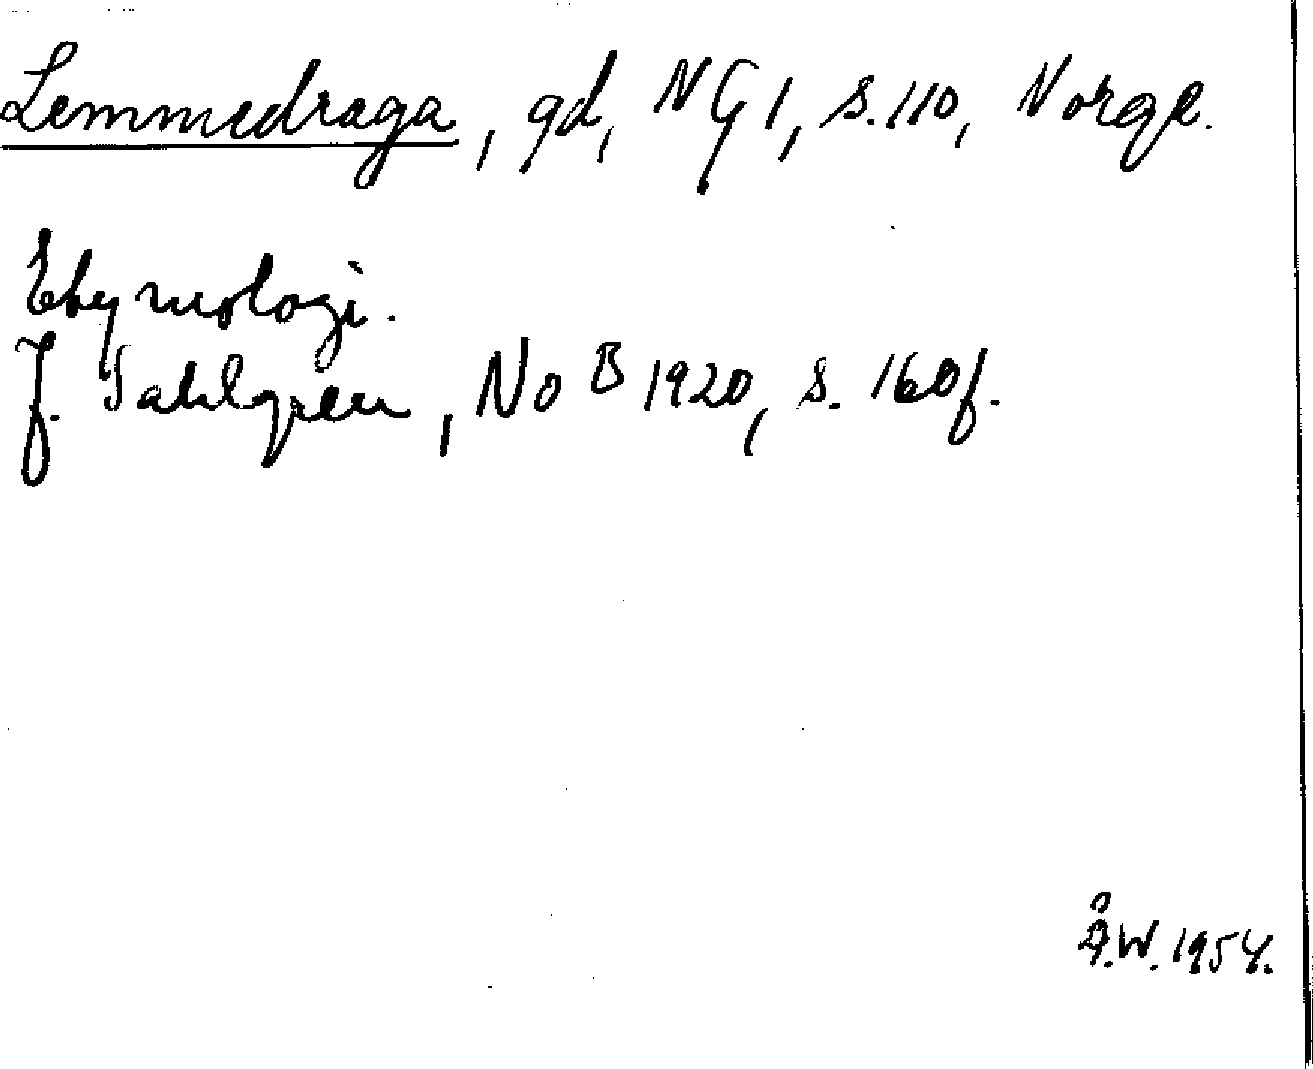 Lemmedraga, gd, NG 1, s. 110, Norge.
Etymologi.
J. Sahlgren, NoB 1920, s. 160 f.
Å.W. 1954.